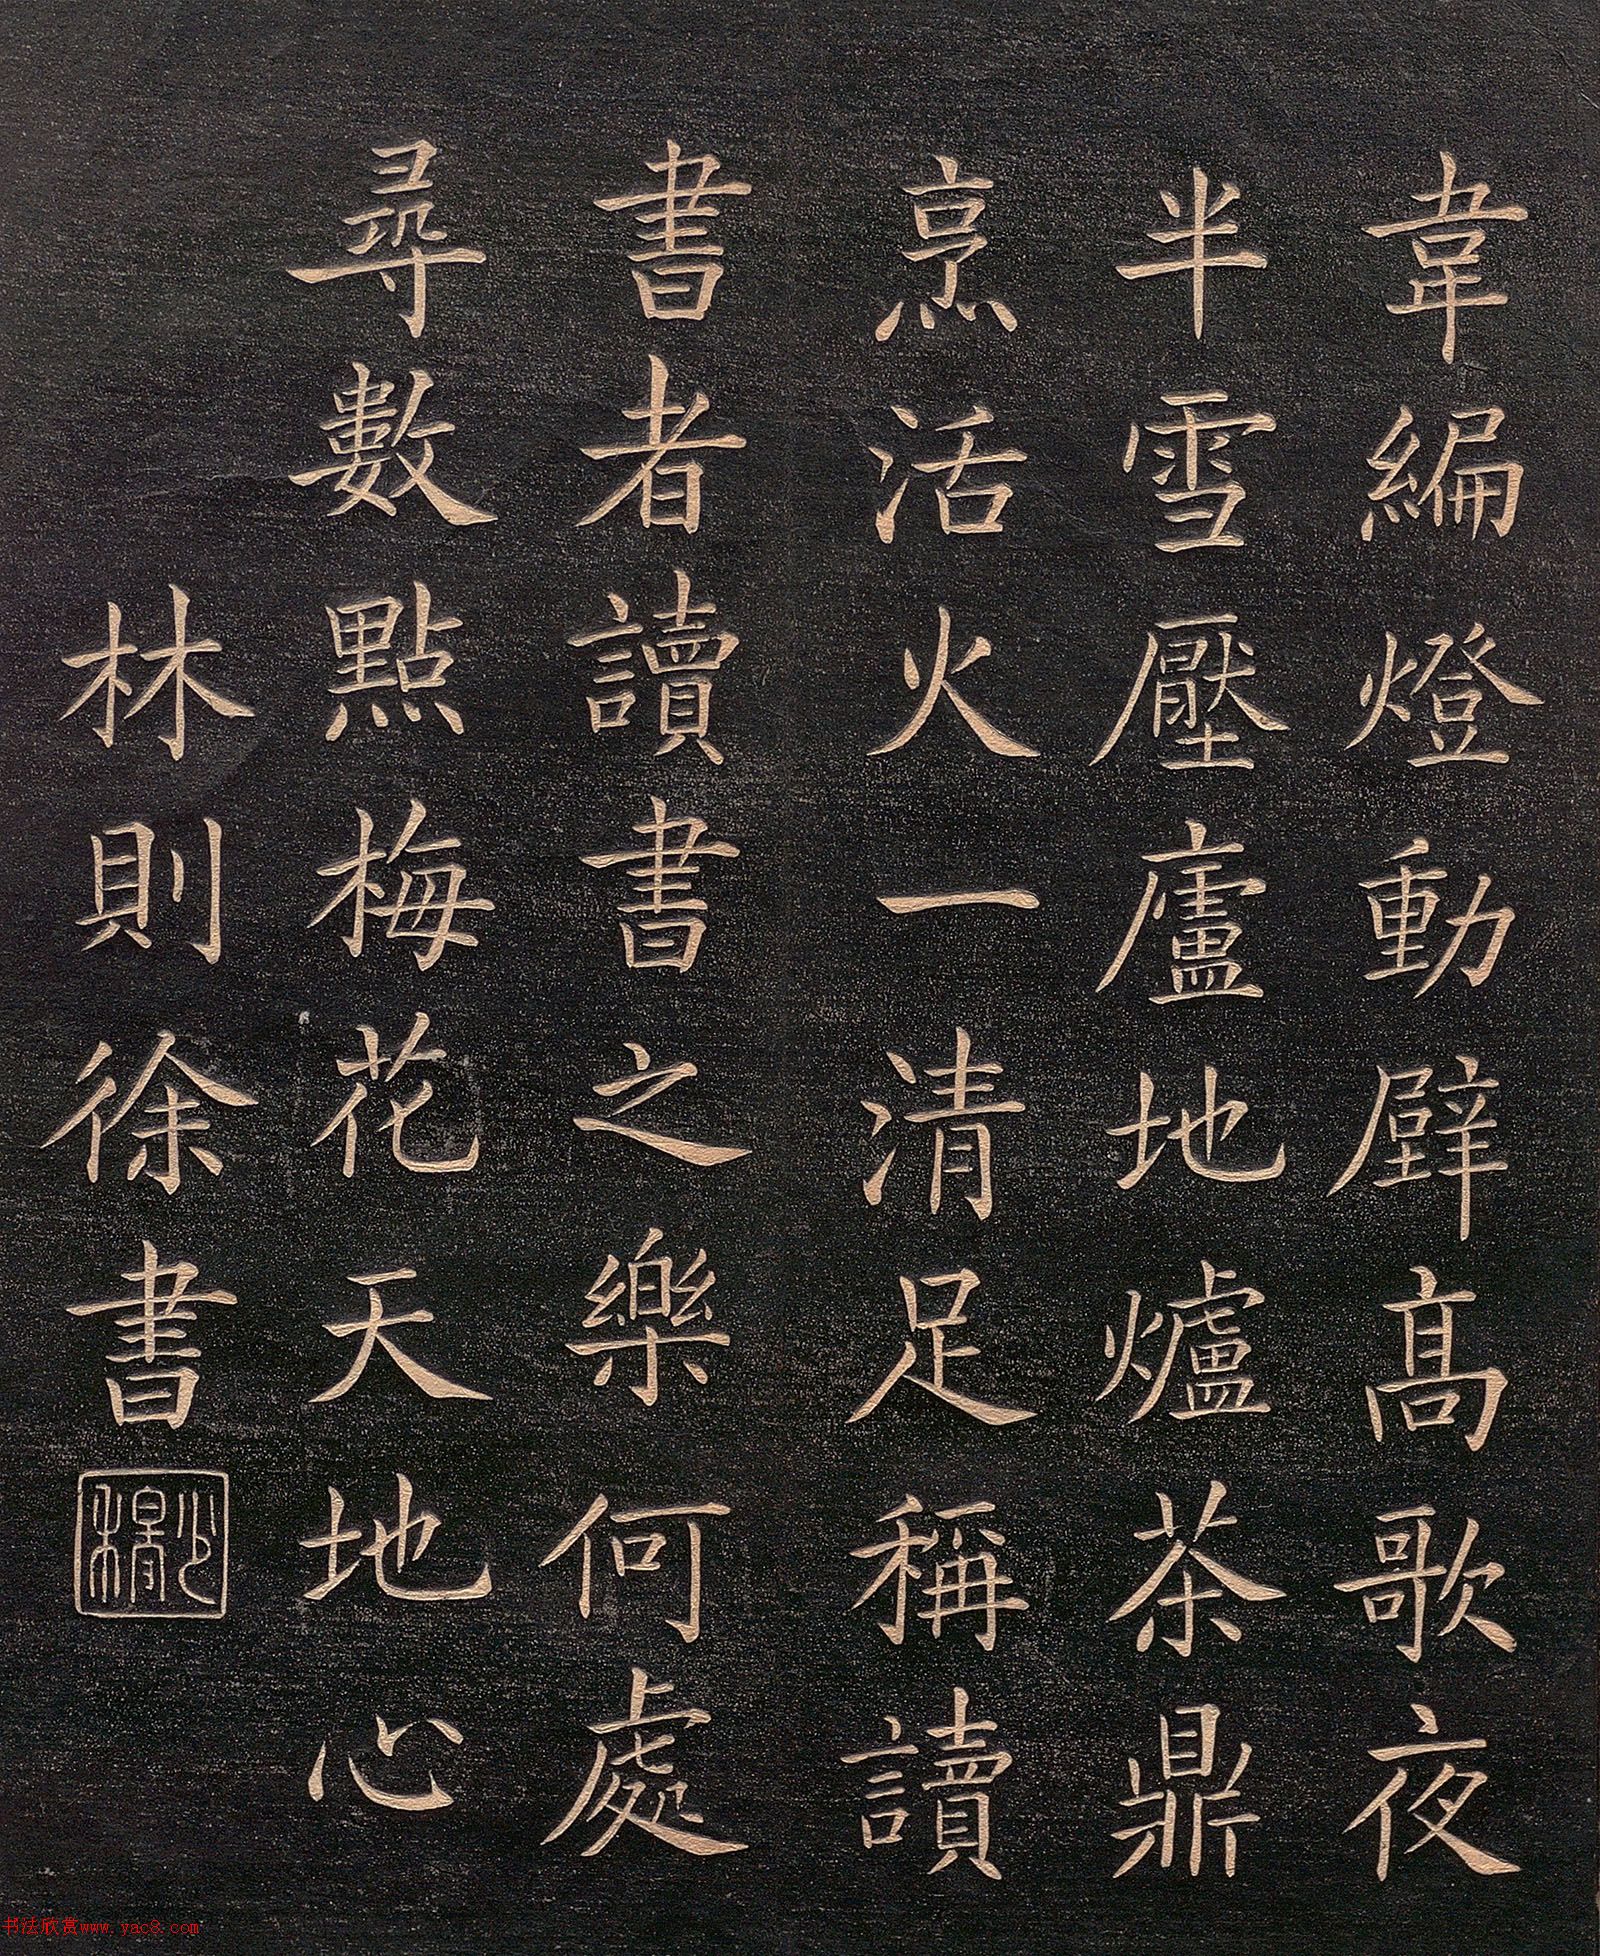 韋編燈動壁高歌夜
半雪壓廬地爐茶鼎
烹活火一清足稱讀
書者讀書之樂何處
尋數點梅花天地心
林則徐書
少穆
书法欣赏www.yac8.com